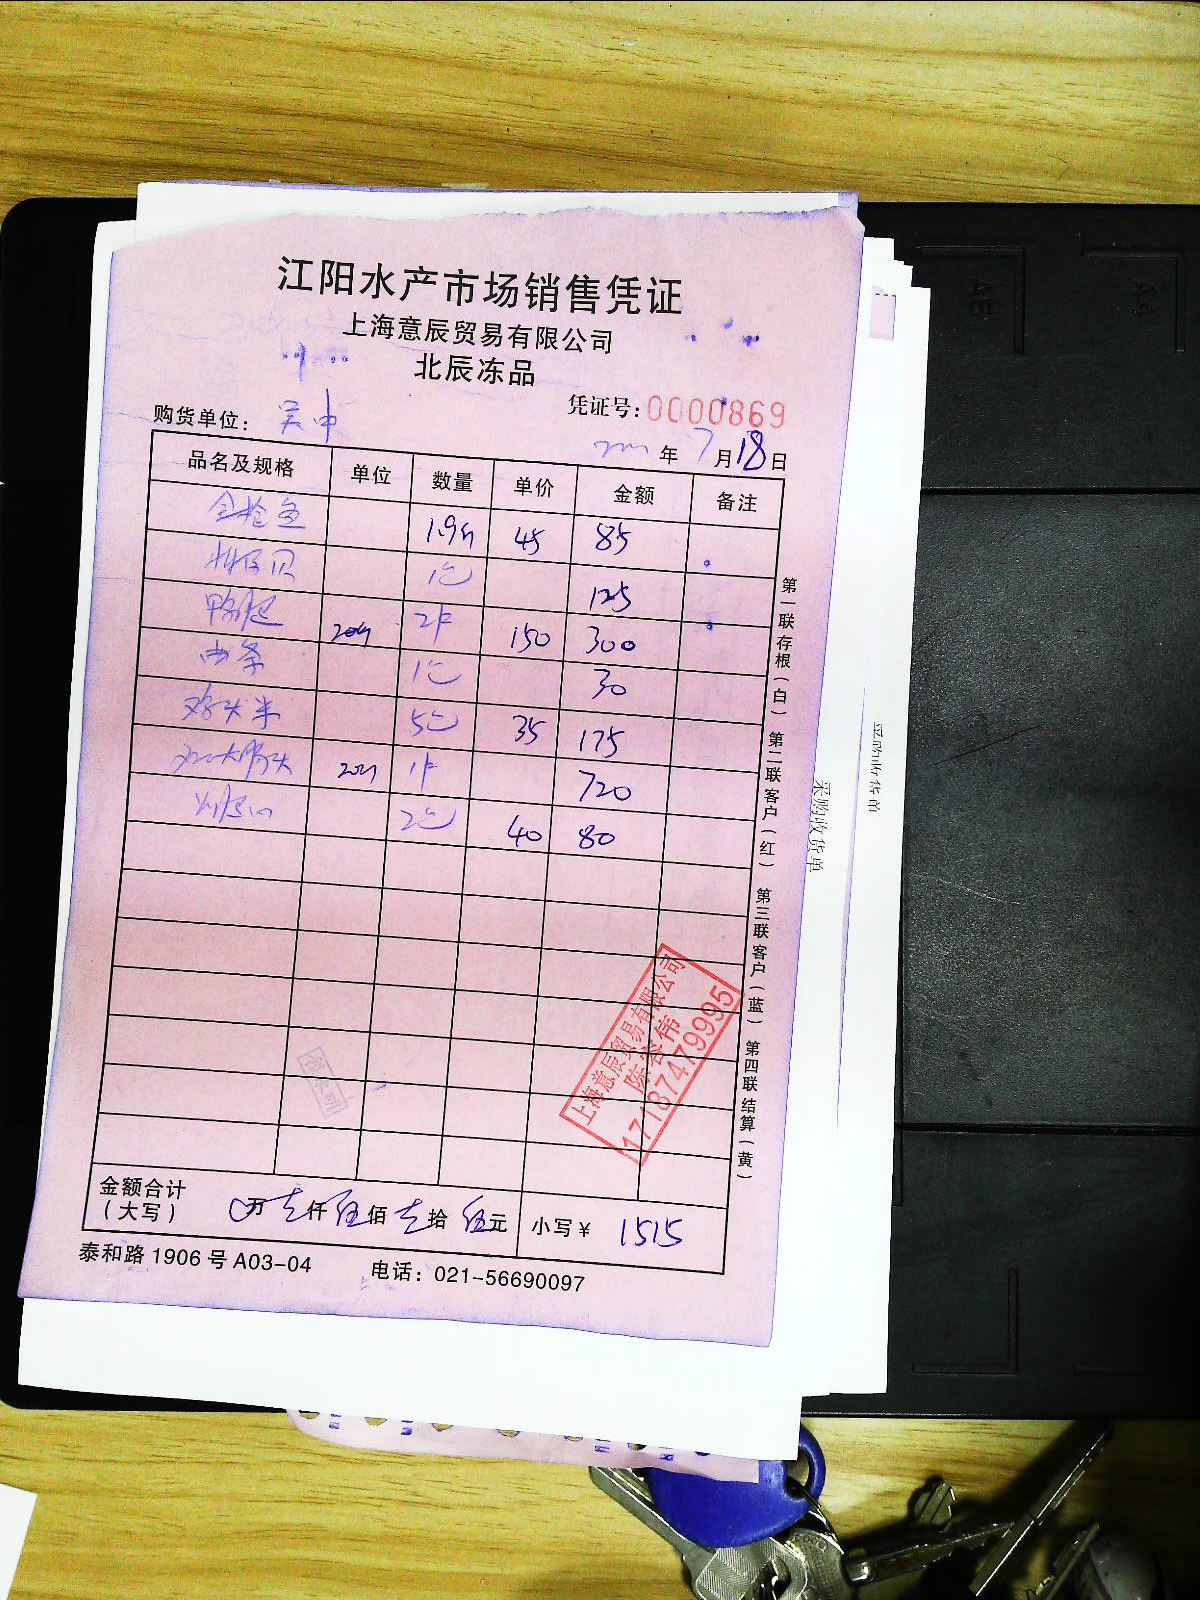 江阳水产市场销售凭证
上海意辰贸易有限公司
北辰冻品
凭证号：0000869
购货单位：吴中
年 7月18日
品名及规格 单位 数量 单价 金额 备注
金枪鱼 1.9斤 45 85
1包 125
鸭腿 20斤 2件 150 300
1包 30
鸡头米 5包 35 175
20斤 1件 720
2包 40 80
金额合计（大写） 0万壹仟伍佰壹拾伍元 小写￥ 1515
泰和路1906号A03-04 电话：021-56690097
第一联存根（白） 第二联客户（红） 第三联客户（蓝） 第四联结算（黄）
上海意辰贸易有限公司
17187479995
采购收货单
采购收货单
A5
A4